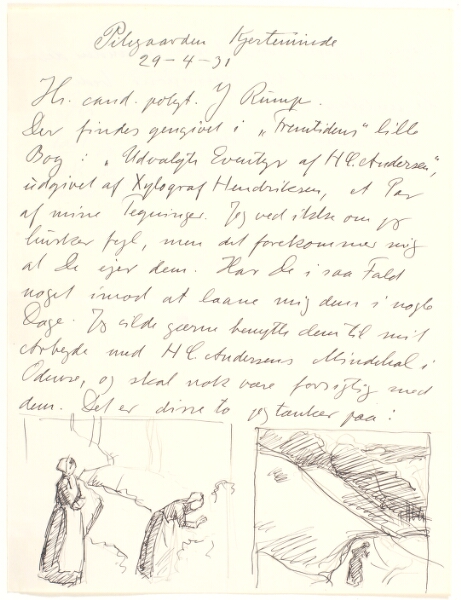 Pilegaarden Kjerteminde
29-4-31
Hr. cand. polyt. J Rump.
Der findes gengivet i „Fremtidens" lille
Bog: „Udvalgte Eventyr af H C. Andersen",
udgivet af Xylograf Hendriksen, et Par
af mine Tegninger. Jeg ved ikke om jeg
husker fejl, men det forekommer mig
at De ejer dem. Har De i saa Fald
noget imod at laane mig dem i nogle
Dage. Jeg vilde gærne benytte dem til mit
Arbejde med H C. Andersens Mindehal i
Odense, og skal nok være forsigtig med
dem. Det er disse to jeg tænker paa: